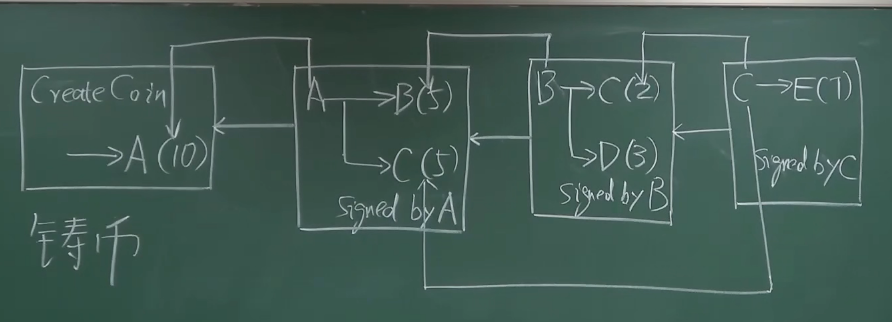 Create Coin
A(10)
铸币
A → B(5)
C(5)
signed by A
B → C(2)
D(3)
signed by B
C → E(7)
signed by C